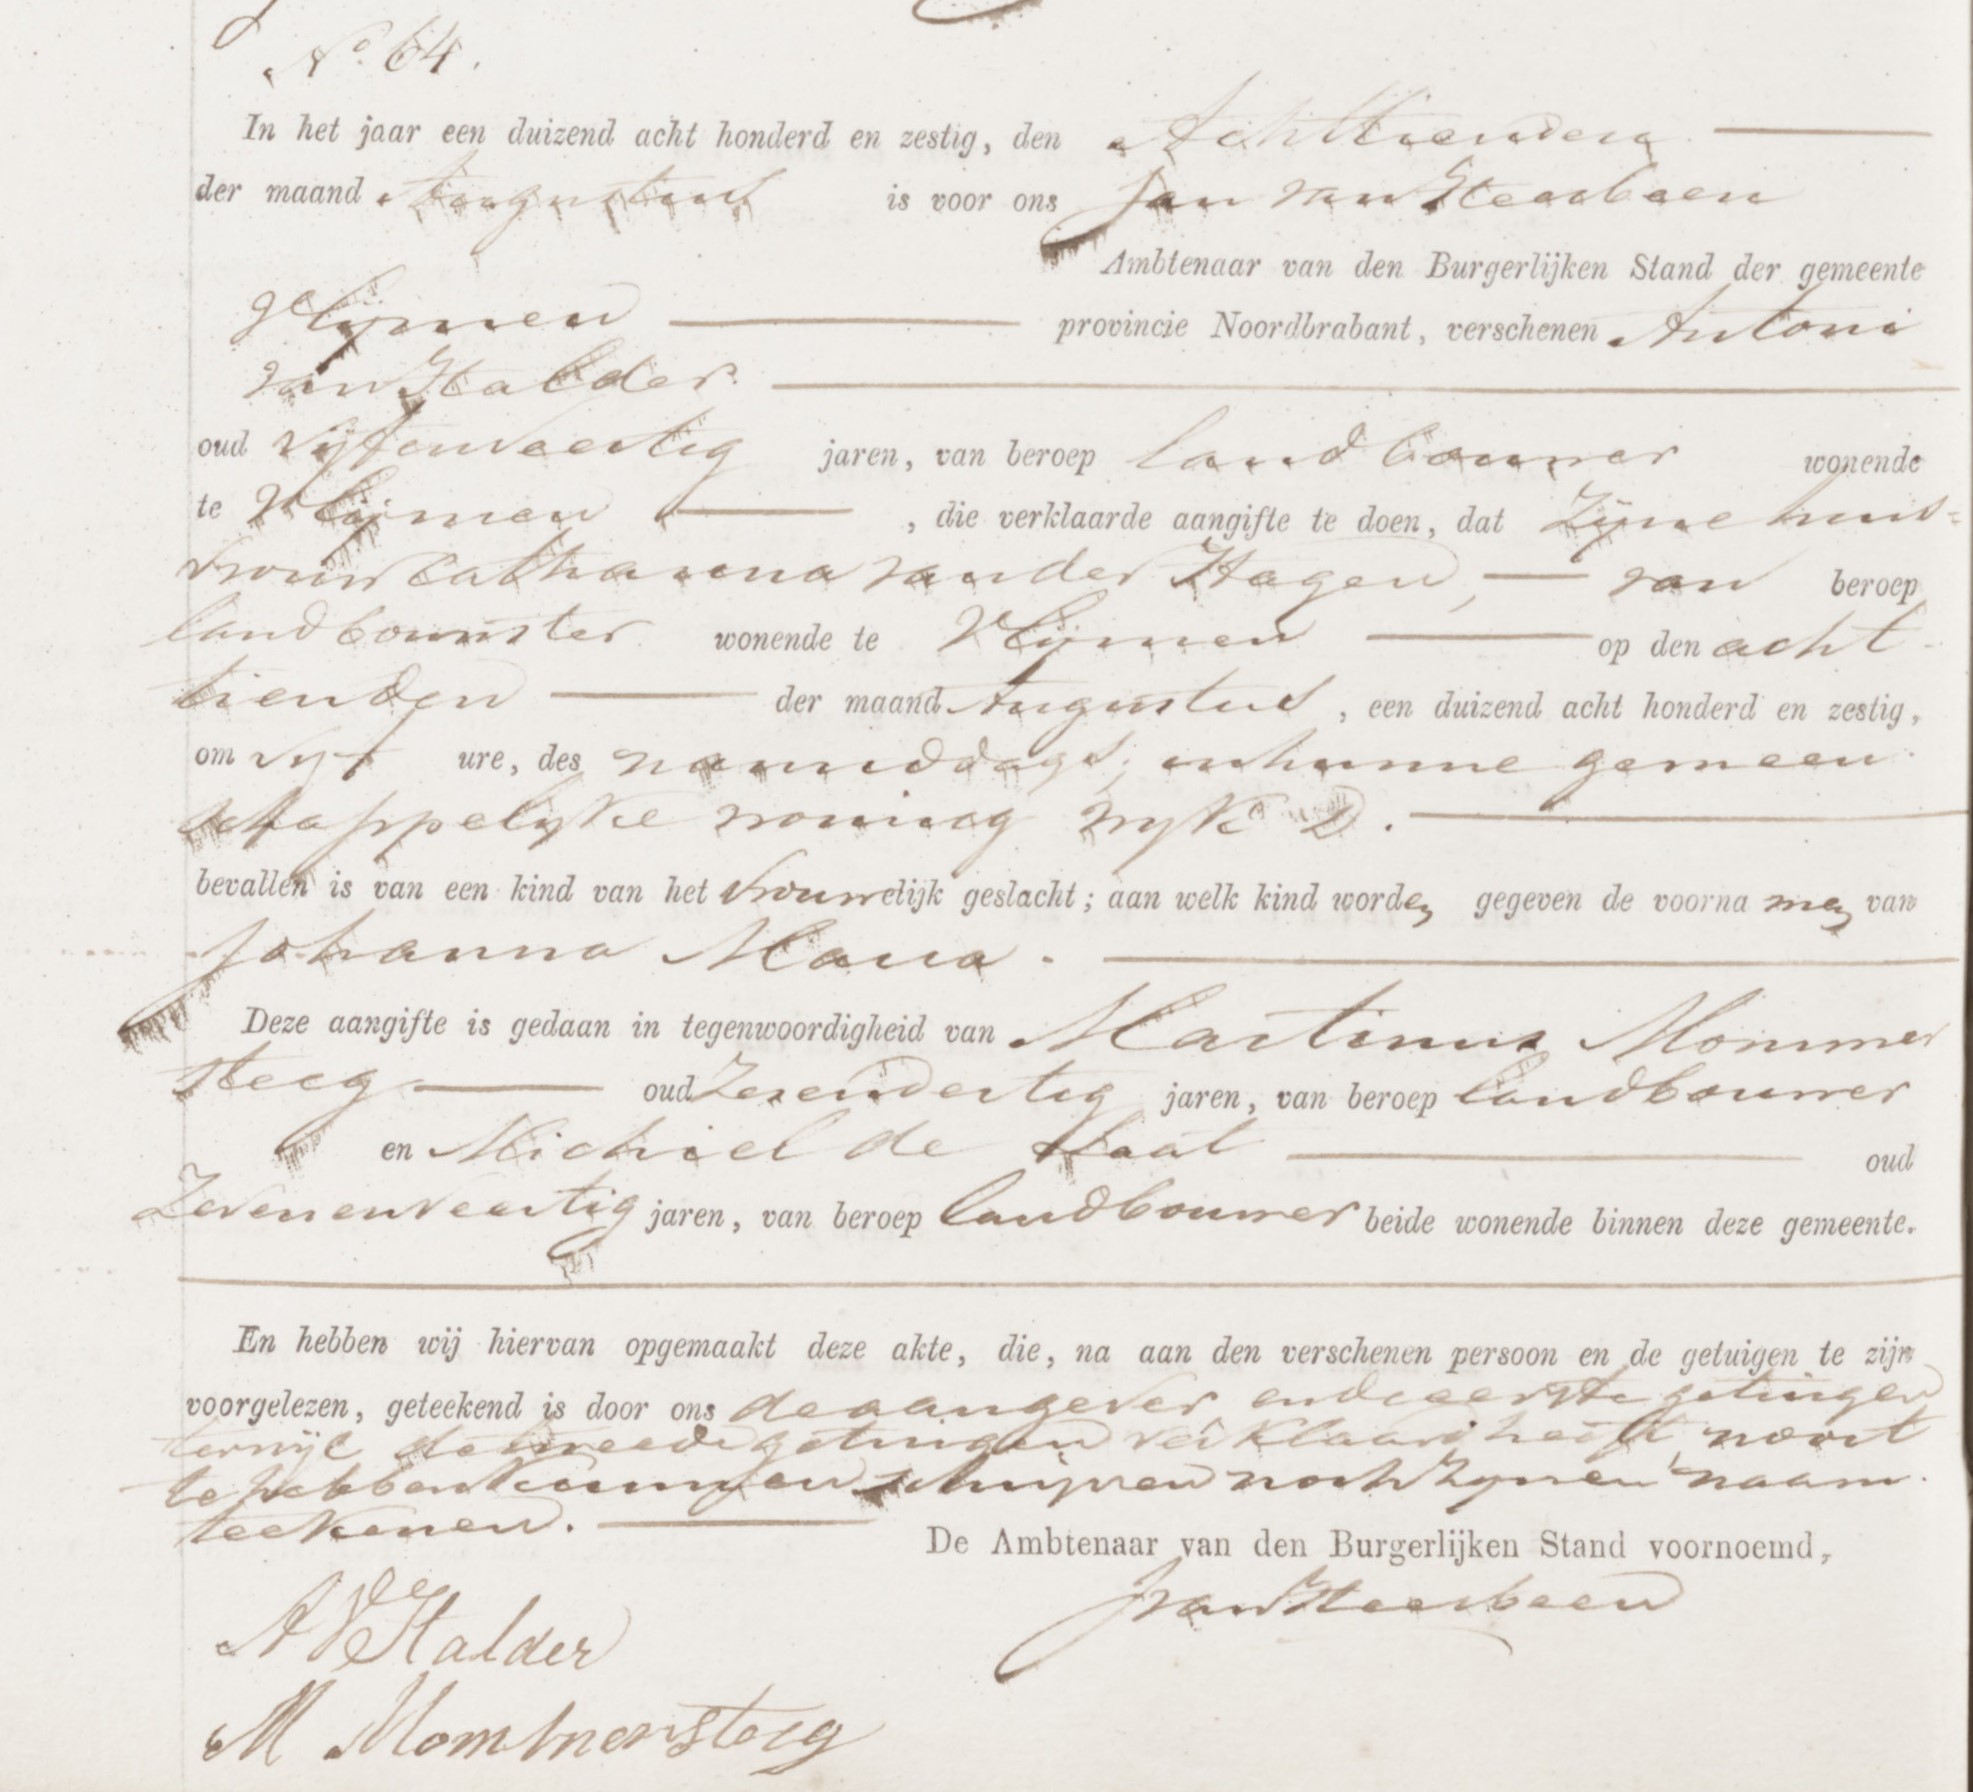 No 64.
In het jaar een duizend acht honderd en zestig, den Achttienden
der maand Augustus is voor ons Jan van Heesbeen
Ambtenaar van den Burgerlijken Stand der gemeente
Vlijmen provincie Noordbrabant, verschenen Antoni
van Halder.
oud vijfenveertig jaren, van beroep landbouwer wonende
te Vlijmen , die verklaarde aangifte te doen, dat zijne huis=
vrouw Catharina van der Hagen, van beroep
landbouwster wonende te Vlijmen op den acht
tienden der maand Augustus, een duizend acht honderd en zestig,
om vijf ure, des namiddags, in hunne gemeen
schappelijke woning wijk D.
bevallen is van een kind van het vrouwelijk geslacht; aan welk kind worden gegeven de voorna men van
Johanna Maria.
Deze aangifte is gedaan in tegenwoordigheid van Martinus Mommer
steeg oud zesendertig jaren, van beroep landbouwer
en Michiel de Haal oud
Zevenenveertig jaren, van beroep landbouwer beide wonende binnen deze gemeente.
En hebben wij hiervan opgemaakt deze akte, die, na aan den verschenen persoon en de getuigen te zijn
voorgelezen, geteekend is door ons de aangever en de eerste getuigen
terwijl de tweede getuigen verklaard heeft nooit
te hebben kunnen schrijven noch zijnen naam
teekenen.
De Ambtenaar van den Burgerlijken Stand voornoemd,
J van Heesbeen
A V Halder
M Mommersteeg